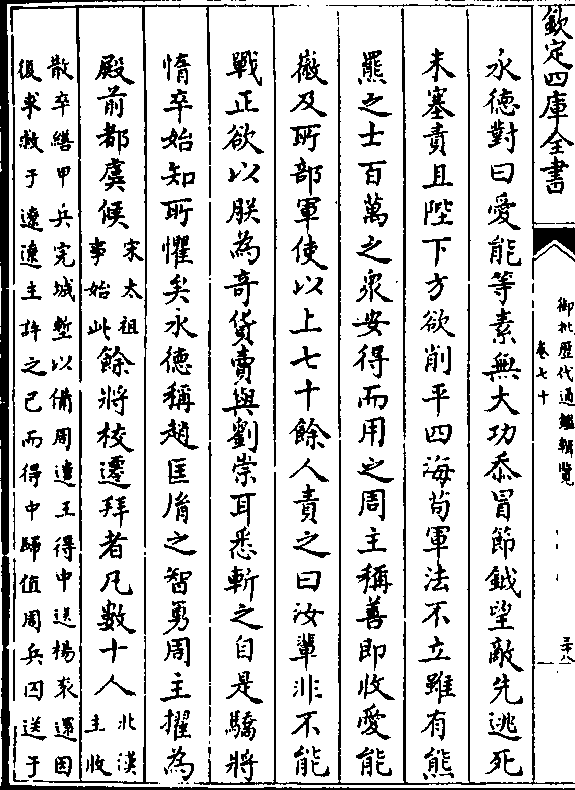 欽定四庫全書
御批歷代通鑑輯覽
卷七十
三十八
永德對曰愛能等素無大功忝冒節鉞望敵先逃死
未塞責且陛下方欲削平四海苟軍法不立雖有熊
羆之士百萬之衆安得而用之周主稱善即收愛能
徽及所部軍使以上七十餘人責之曰汝輩非不能
戰正欲以朕為奇貨賣與劉崇耳悉斬之自是驕將
惰卒始知所懼矣永德稱趙匡胤之智勇周主擢為
殿前都虞候
宋太祖
事始此
餘將校遷拜者凡數十人
北漢
主收
散卒繕甲兵完城塹以備周遣王得中送楊袞還因
復求救于遼遼主許之已而得中歸值周兵囚送于